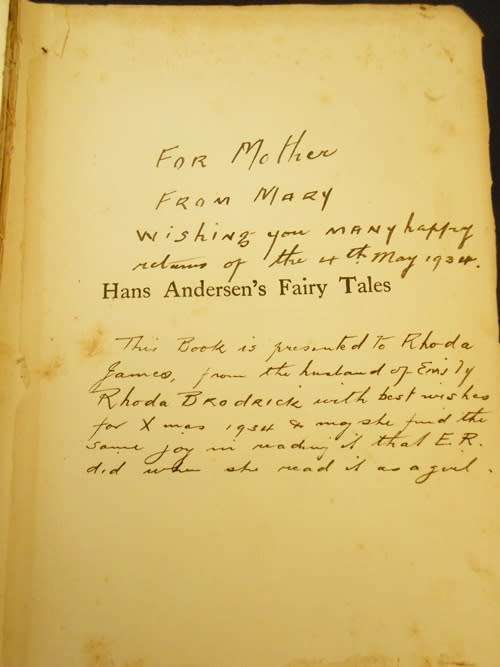 FOR Mother
FROM MARY
WISHING you MANY happy
returns of the 4th May 1934.
Hans Andersen's Fairy Tales
This Book is presented to Rhoda
James, from the husband of Emily
Rhoda BRODRICK with best wishes
for X mas 1934 & may she find the
same joy in reading it that E.R.
did when she read it as a girl.